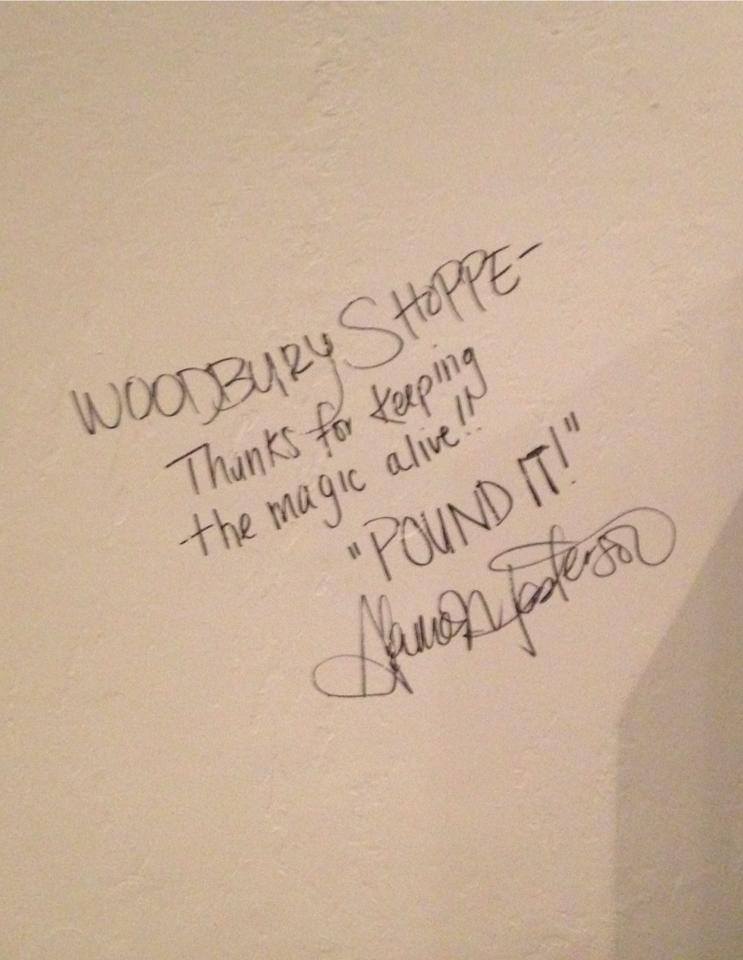 WOODBURY SHOPPE-
Thanks for keeping
the magic alive!!
"POUND IT!"